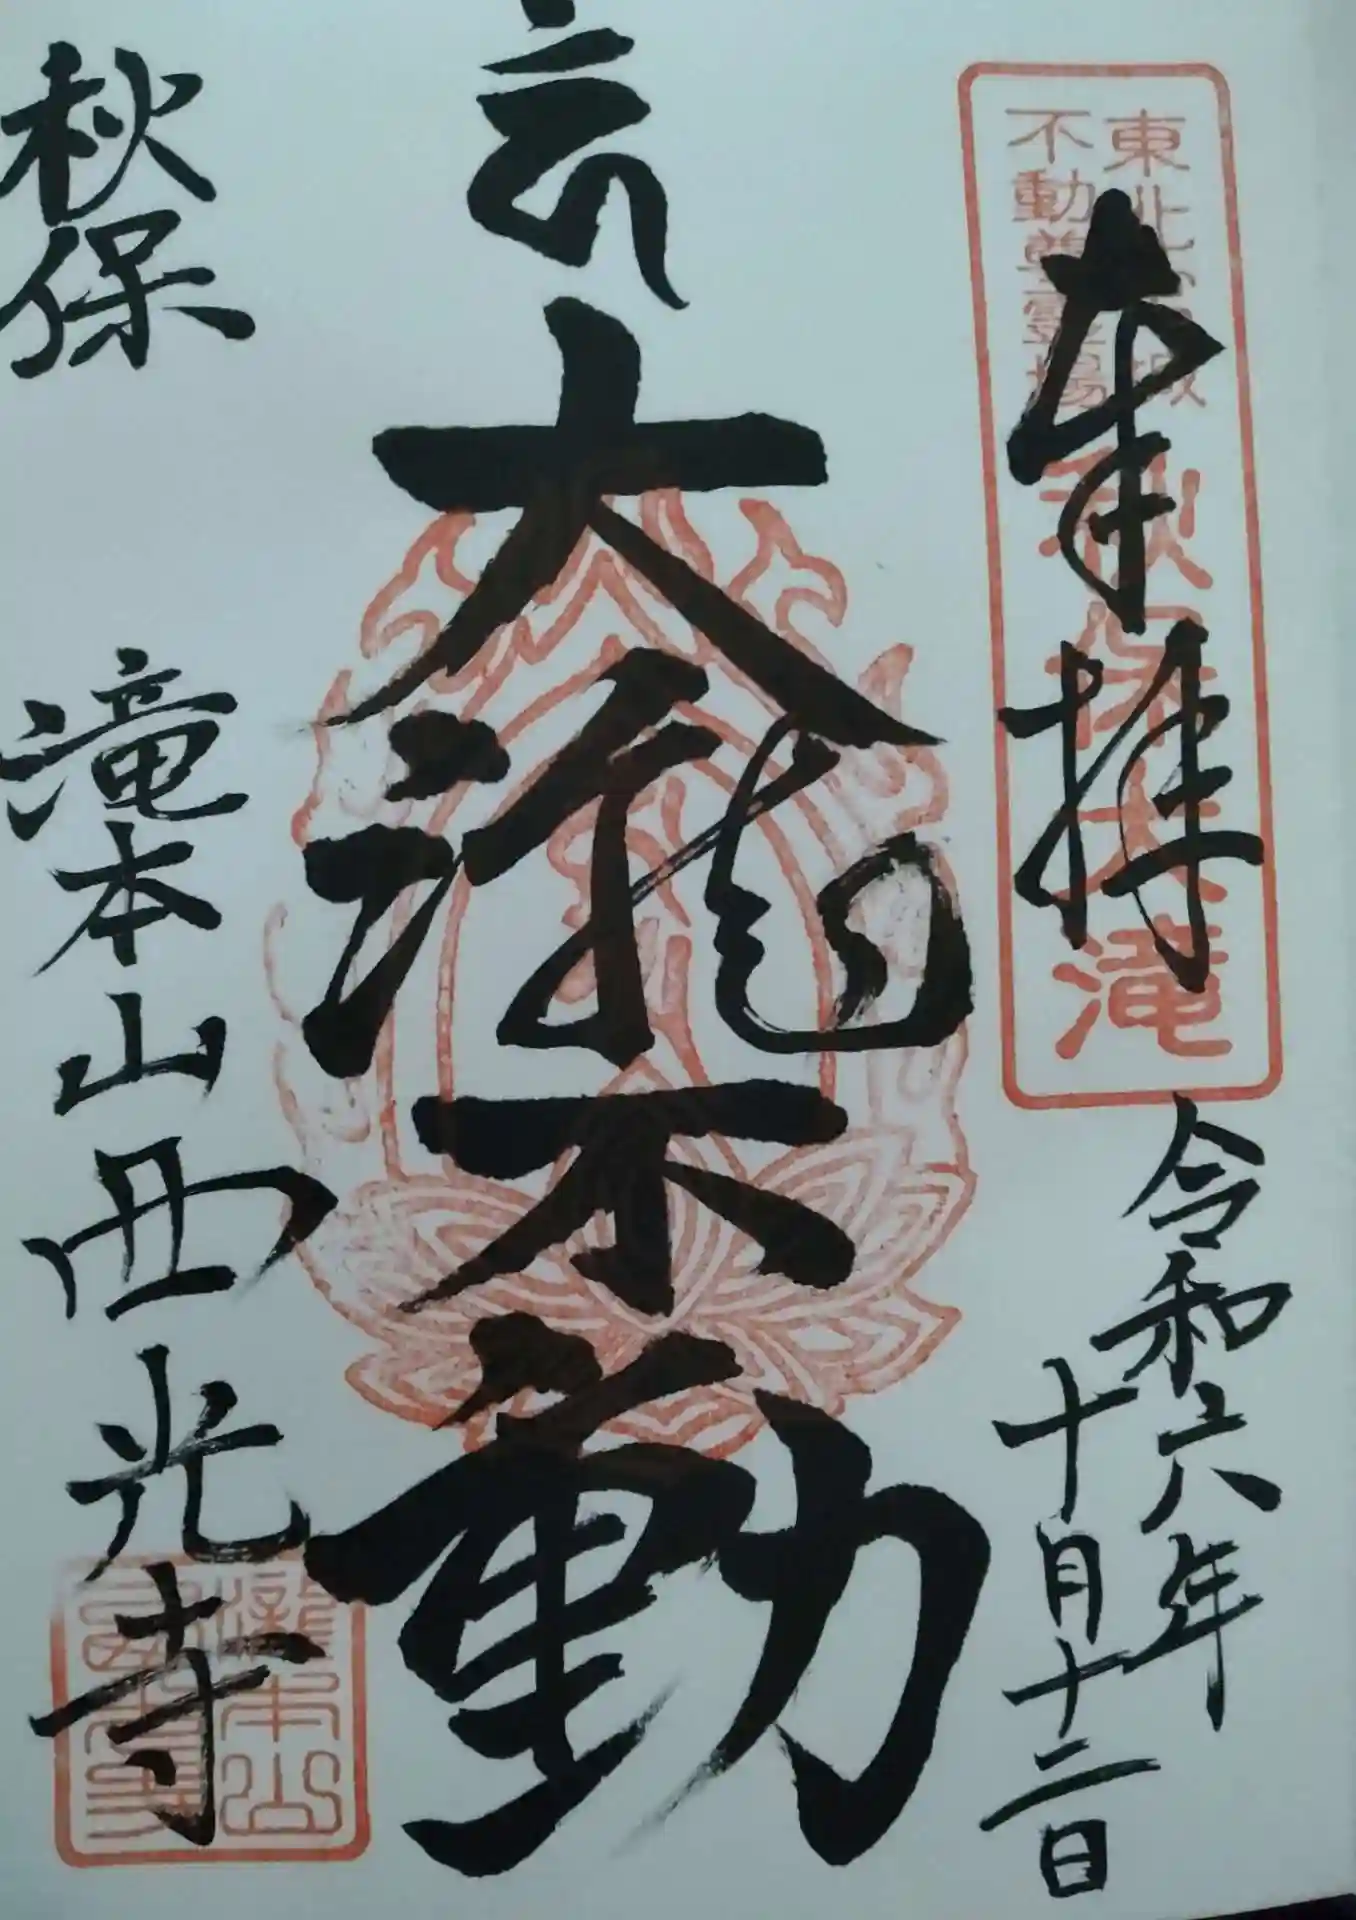 奉拝
東北
不動尊霊場
秋保大滝
令和六年
十月十二日
大瀧不動
秋保
滝本山西光寺
瀧本山